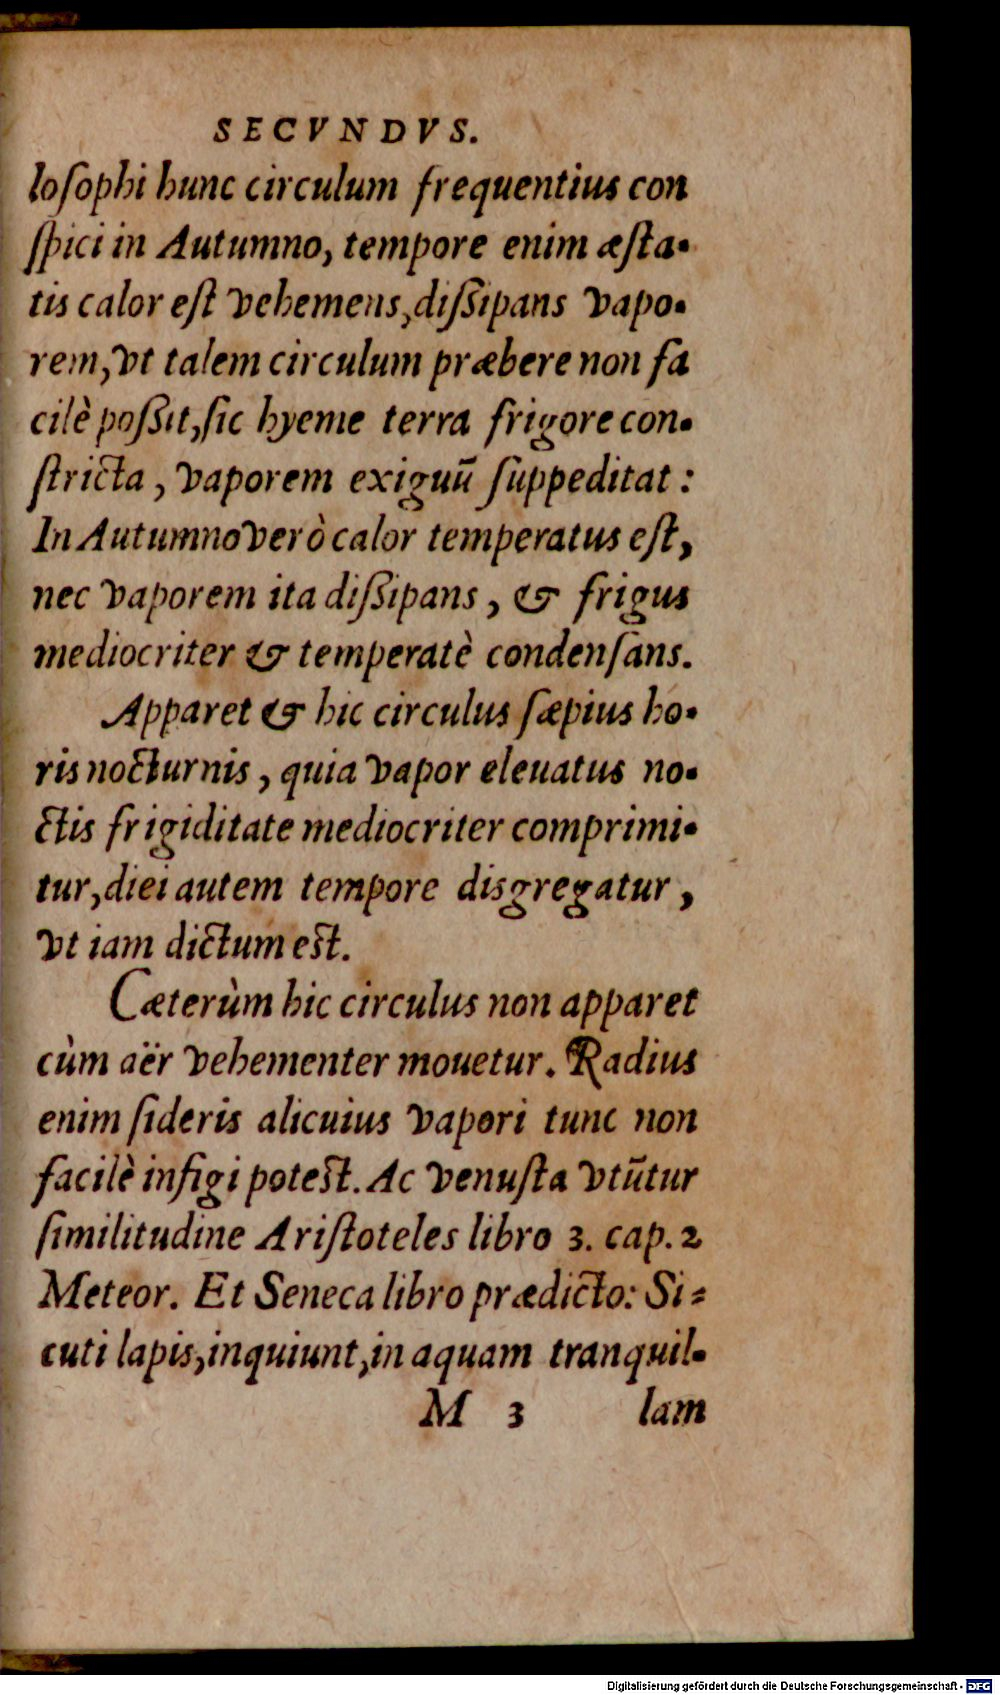 SECVNDVS.
loſophi hunc circulum frequentius con
ſpici in Autumno, tempore enim æſta-
tis calor eſt vehemens, diſſipans vapo-
rem, vt talem circulum præbere non fa
cilè poſſit, ſic hyeme terra frigore con-
ſtricta, vaporem exiguũ ſuppeditat:
In Autumno verò calor temperatus eſt,
nec vaporem ita diſſipans, & frigus
mediocriter & temperatè condenſans.
Apparet & hic circulus ſæpius ho-
ris nocturnis, quia vapor eleuatus no-
ctis frigiditate mediocriter comprimi-
tur, diei autem tempore disgregatur,
vt iam dictum eſt.
Cæterùm hic circulus non apparet
cùm aër vehementer mouetur. Radius
enim ſideris alicuius vapori tunc non
facilè infigi poteſt. Ac venuſta vtũtur
ſimilitudine Ariſtoteles libro 3. cap. 2
Meteor. Et Seneca libro prædicto: Si-
cuti lapis, inquiunt, in aquam tranquil-
M 3 lam
Digitalisierung gefördert durch die Deutsche Forschungsgemeinschaft - DFG